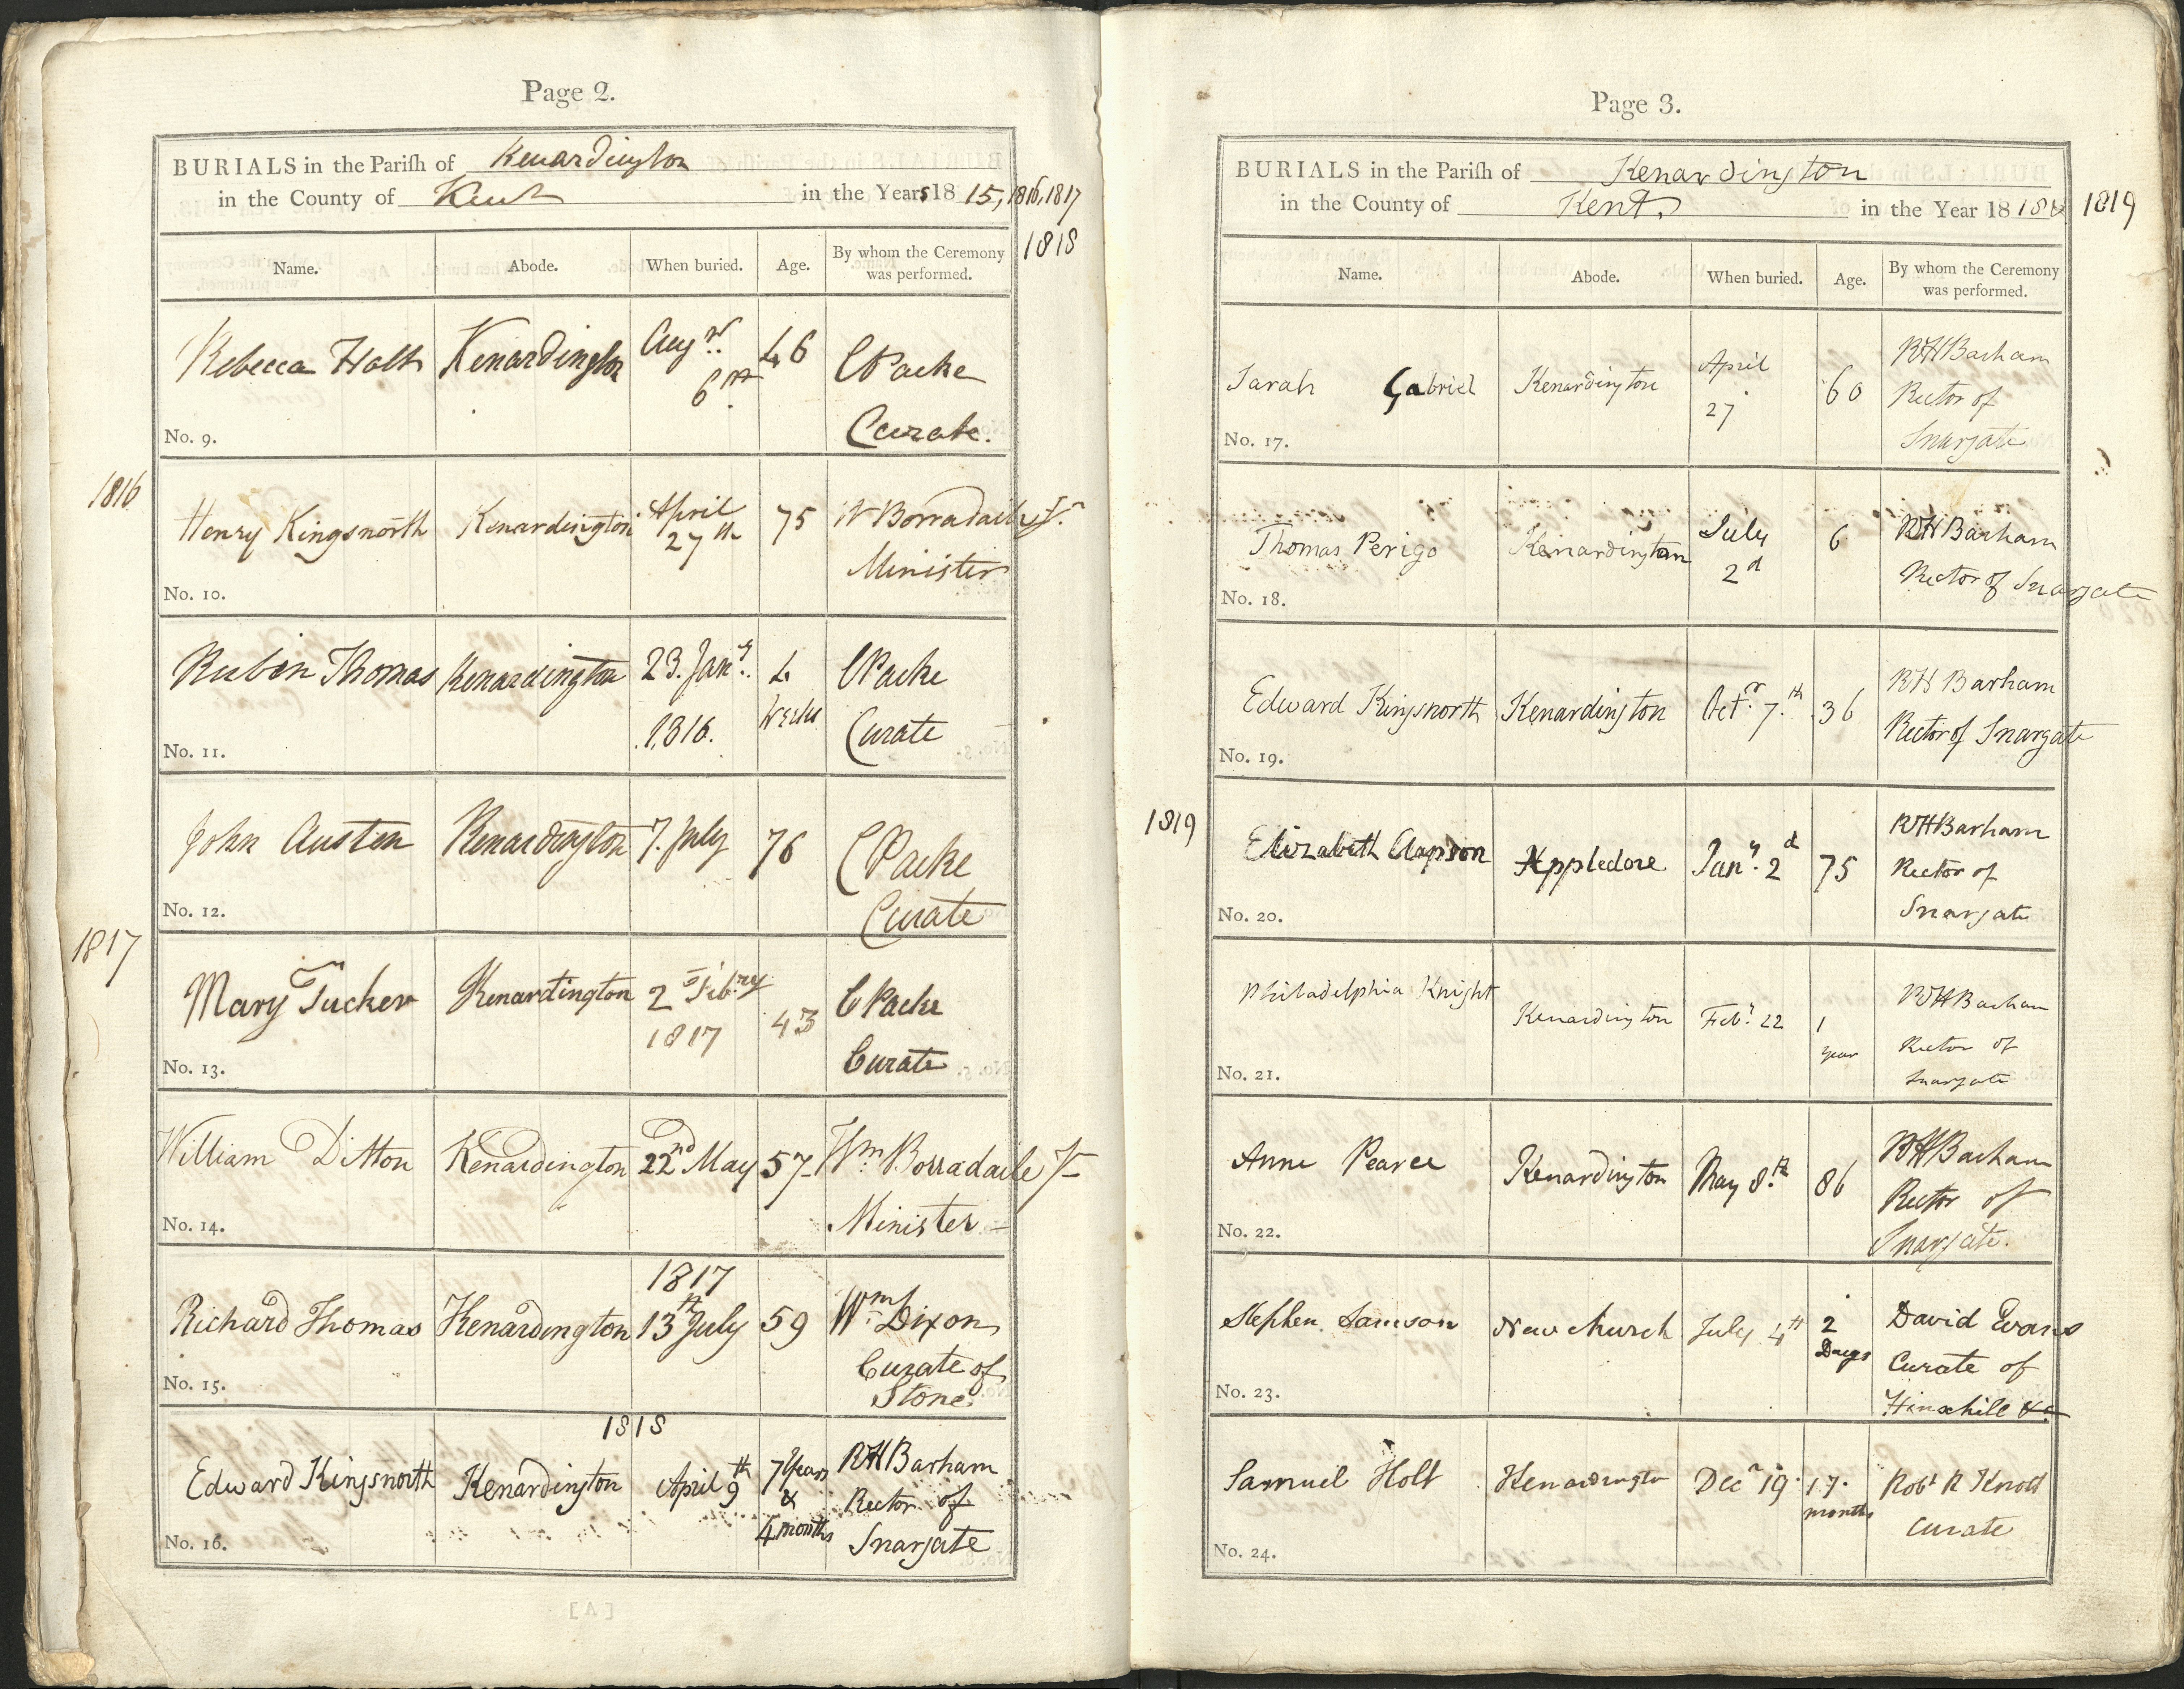 Page 2.
BURIALS in the Pariſh of Kenardington
in the County of Kent in the Years 18 15, 1816, 1817
1818
Name. Abode. When buried. Age. By whom the Ceremony was performed.
Rebecca Holt Kenardington Augst. 6th 46 CPacke
Curate.
No. 9.
1816
Henry Kingsnorth Kenardington April 27th 75 W Borradaile Jr.
Minister
No. 10.
Reubin Thomas Kenardington 23. Jany. 1816. 4 Weeks CPacke
Curate
No. 11.
John Austen Kenardington 7. July 76 CPacke
Curate
No. 12.
1817
Mary Tucker Kenardington 2 Febry 1817 43 CPacke
Curate
No. 13.
William Ditton Kenardington 22nd May 57 Wm Borradaile Jr
Minister
No. 14.
1817
Richard Thomas Kenardington 13th July 59 Wm Dixon
Curate of
Stone.
No. 15.
1818
Edward Kingsnorth Kenardington April 9th 7 Years & 4 months RHBarham
Rector of
Snargate
No. 16.
[A]
Page 3.
BURIALS in the Pariſh of Kenardington
in the County of Kent. in the Year 18 18 & 1819
Name. Abode. When buried. Age. By whom the Ceremony was performed.
Sarah Gabriel Kenardington April 27 60 RHBarham
Rector of
Snargate
No. 17.
Thomas Perigo Kenardington July 2d 6 RHBarham
Rector of Snargate
No. 18.
Edward Kingsnorth Kenardington Octr. 7th 36 RHBarham
Rector of Snargate
No. 19.
1819
Elizabeth Clapson Appledore Jany. 2d 75 RHBarham
Rector of
Snargate
No. 20.
Philadelphia Knight Kenardington Feby. 22 1 year RHBarham
Rector of
Snargate
No. 21.
Anne Pearce Kenardington May 8th 86 RHBarham
Rector of
Snargate.
No. 22.
Stephen Samson Newchurch July 4th 2 Days David Evans
Curate of
Hinxhill &c
No. 23.
Samuel Holt Kenardington Decr 19. 17. months Robt R Knott
Curate
No. 24.